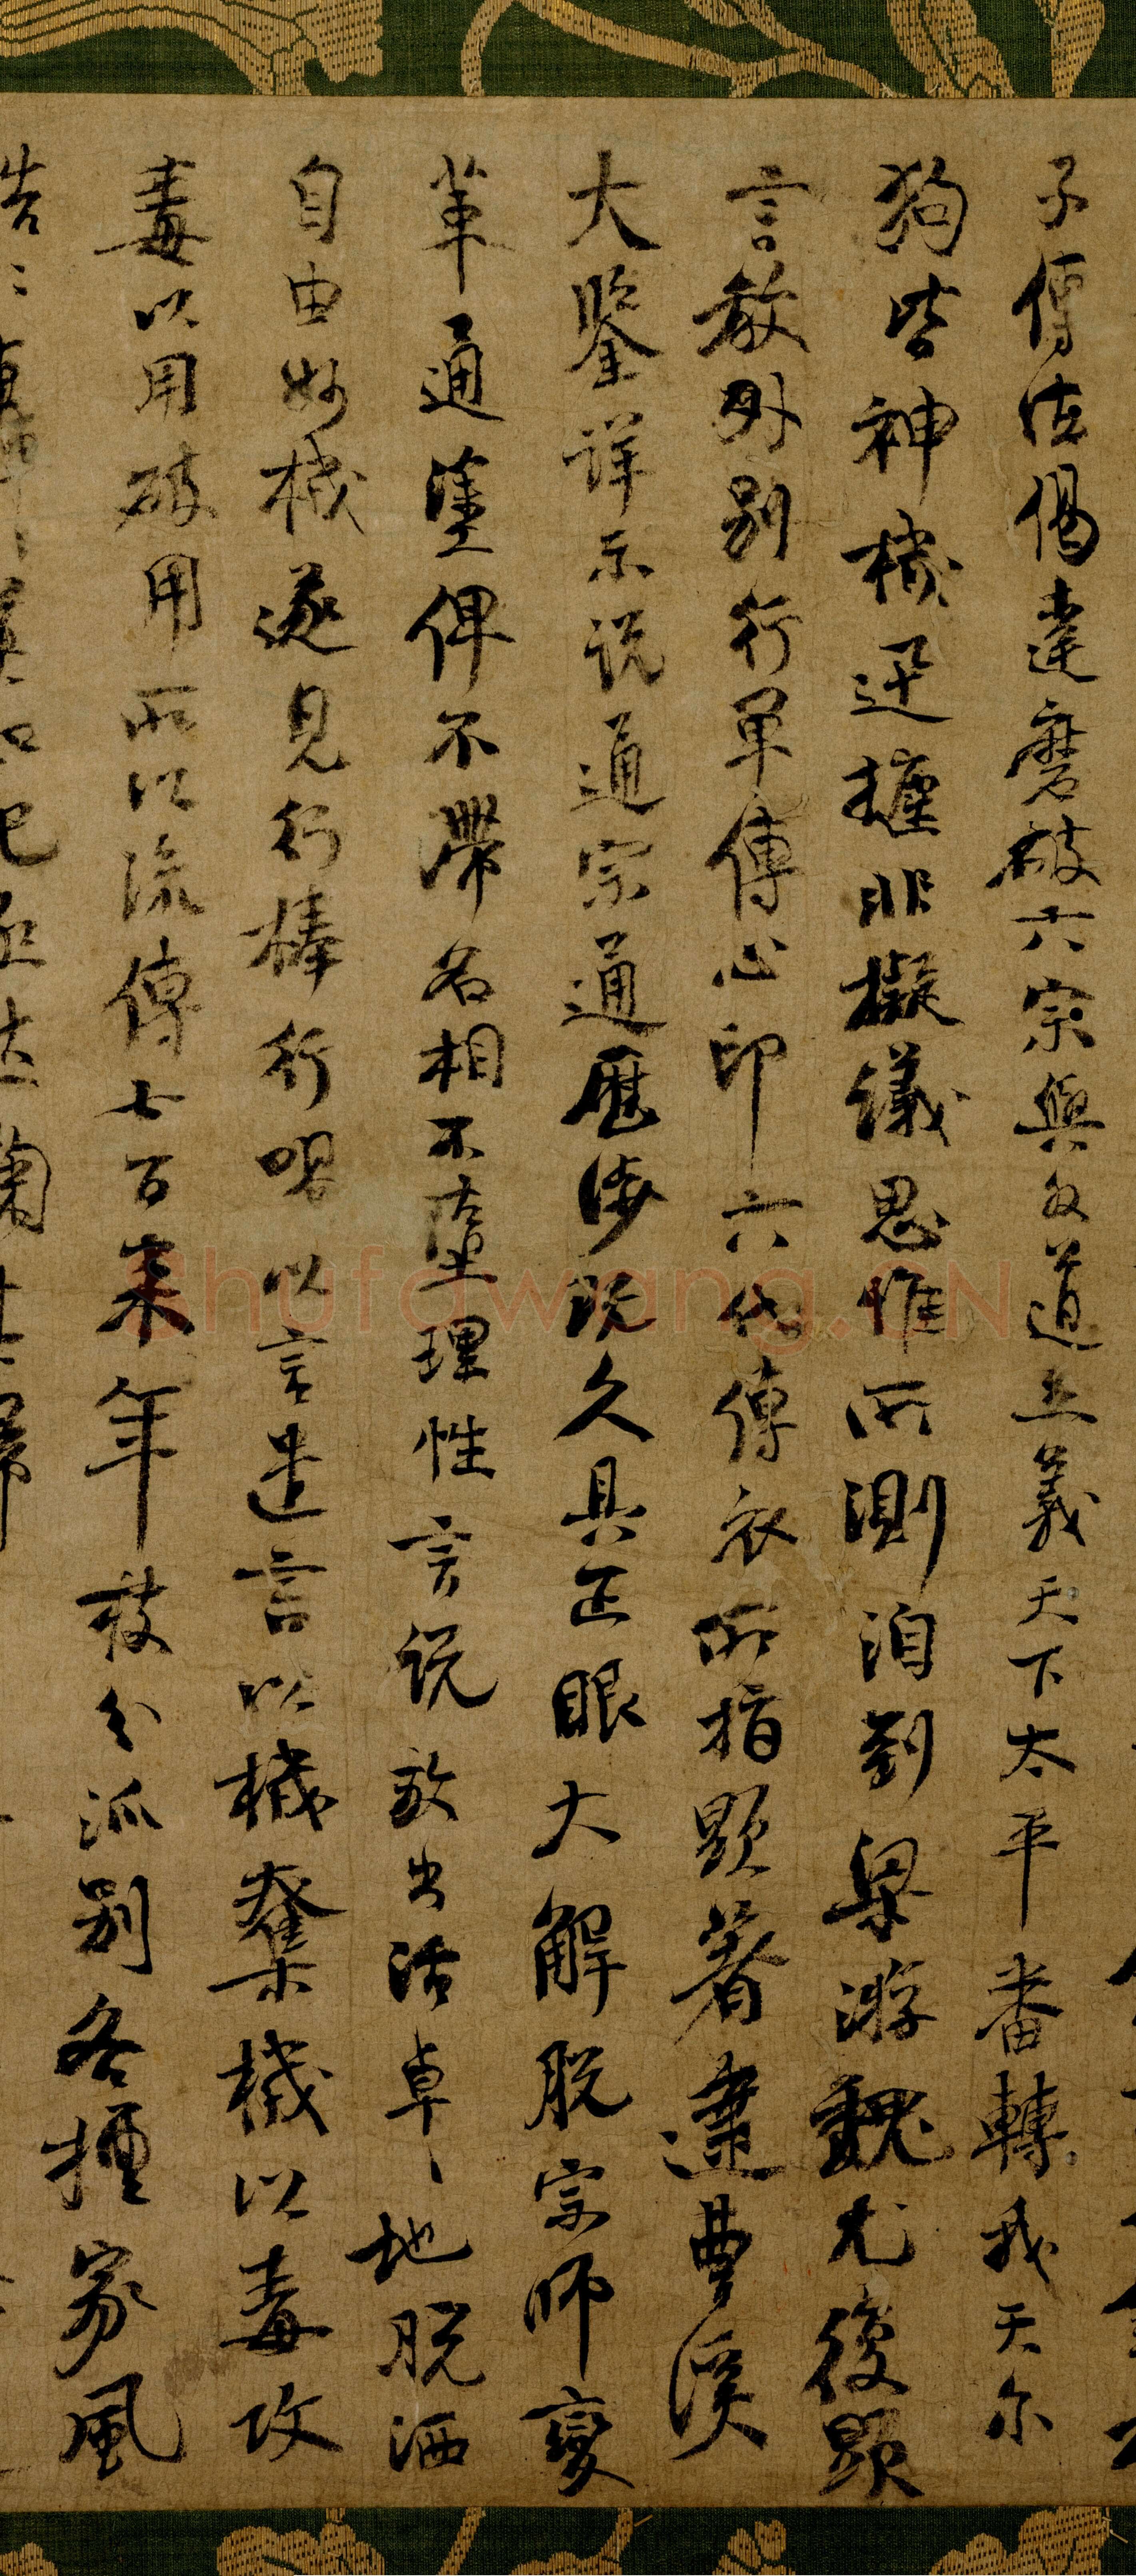 子傳法偈達磨破六宗與外道立義天下太平番轉我天尔
狗皆神機迅捷非擬議思惟所測洎到梁游魏尤復顯
言教外別行單傳心印六代傳衣所指顯著逮曹溪
大鑒詳示說通宗通歷涉既久具正眼大解脫宗師變
革通塗俾不滯名相不墮理性言說放出活卓〻地脫洒
自由妙機遂見行棒行喝以言遣言以機奪機以毒攻
毒以用破用所以流傳七百來年枝分派別各擅家風
浩〻
Shufawang.CN